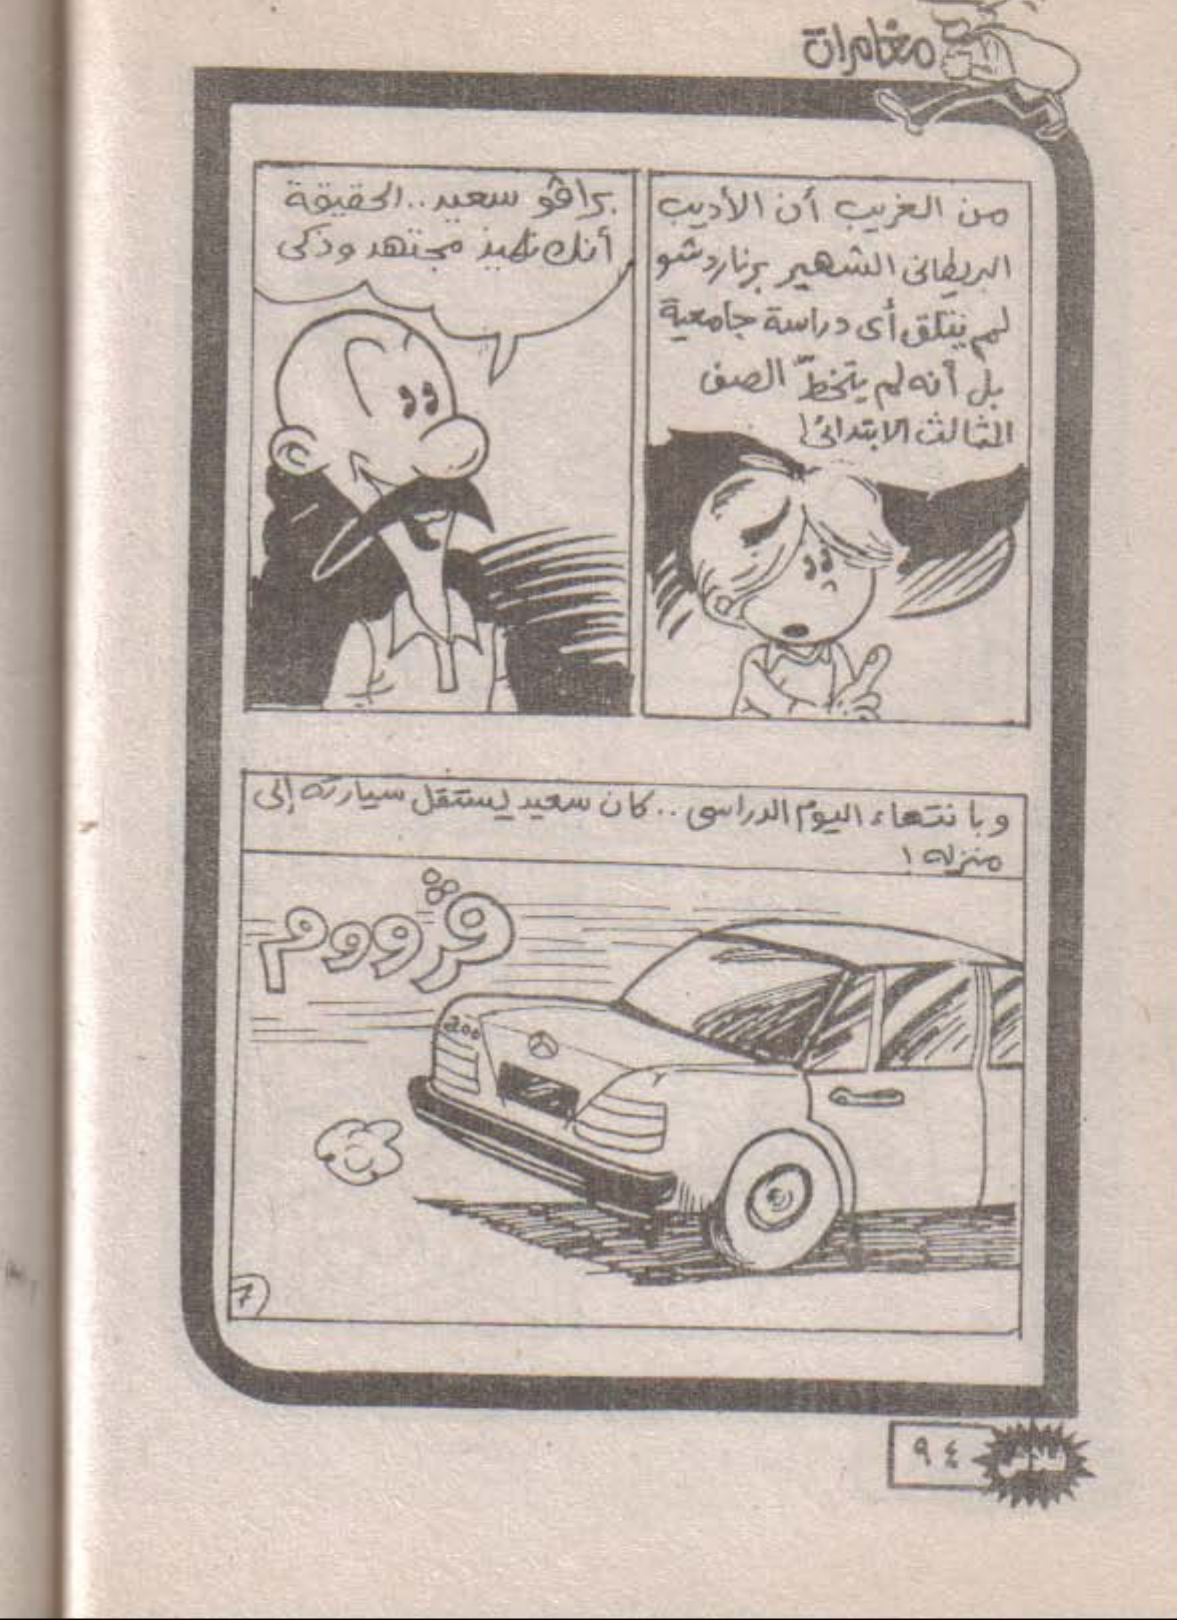 مغامرات
من الغريب أن الأديب
البريطانى الشهير برناردشو
لم يتلق أى دراسة جامعية
بل أنه لم يتخطّ الصف
الثالث الابتدائى!
براڤو سعيد..الحقيقة
أنك تلميذ مجتهد وذكى
وبانتهاء اليوم الدراسى..كان سعيد يستقل سيارته إلى
منزله!
ڤرووم
200
٩٤